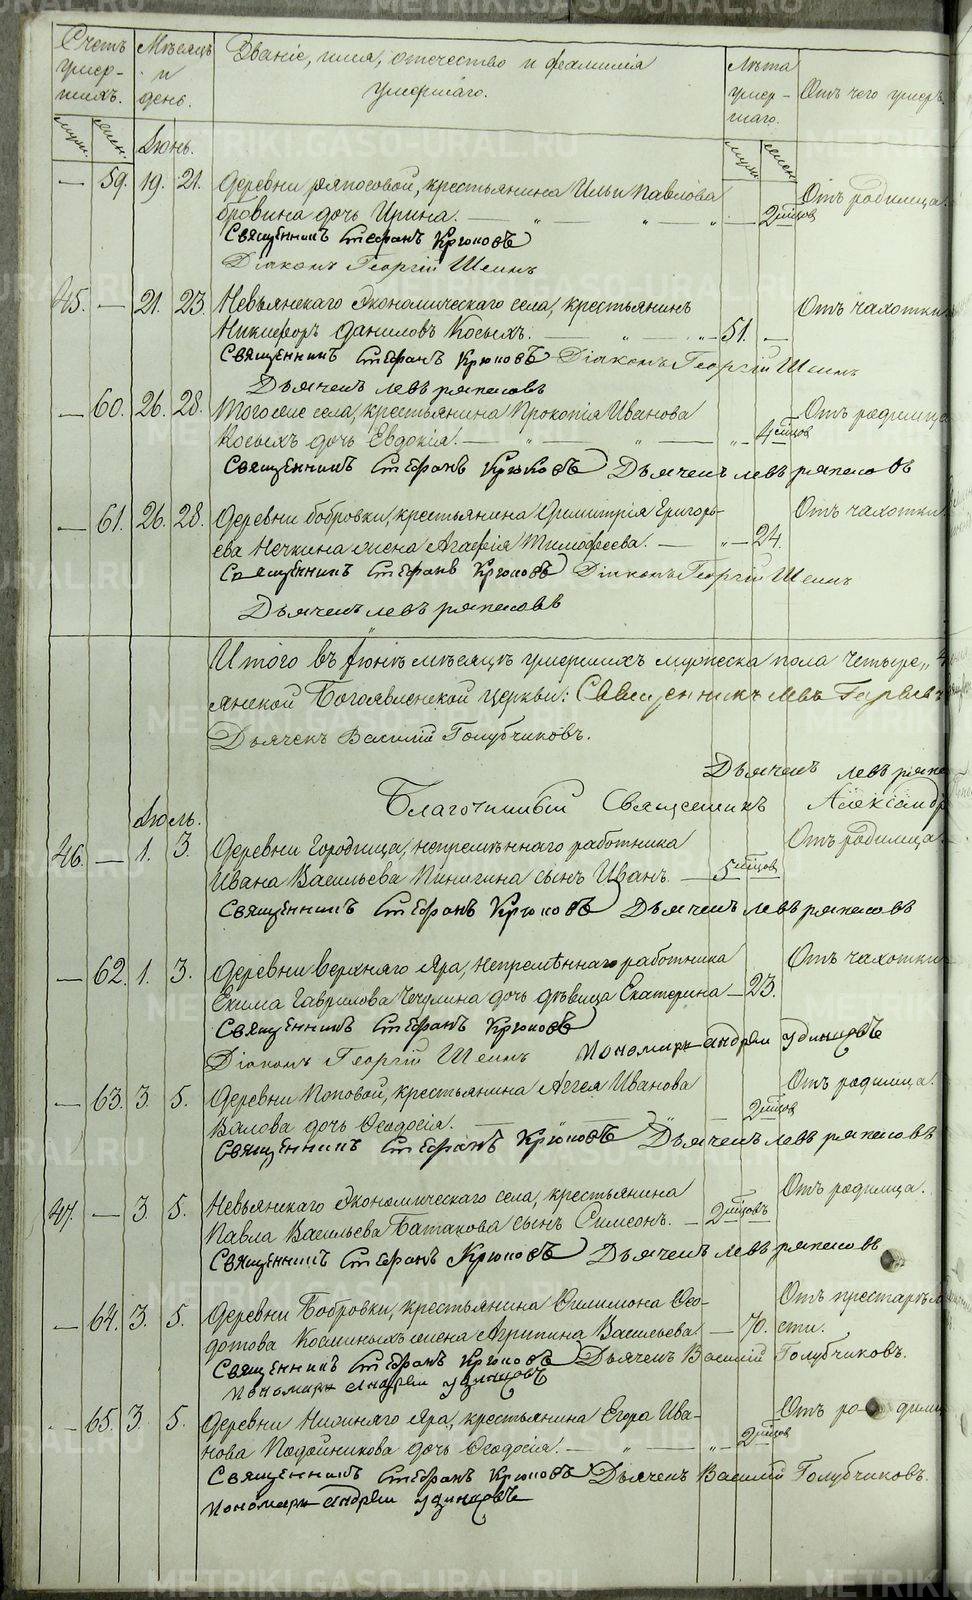 METRIKI.GASO-URAL.RU
Счетъ умер-
шихъ.
муж.
жен.
Мѣсяцъ и день.
Званіе, имя, отечество и фамилія
умершаго.
Лѣта умер-
шаго.
муж.
жен.
Отъ чего умеръ.
Іюнь.
— 59. 19. 21. Деревни Ряпосовой, крестьянина Ильи Павлова Отъ родимца.
бровина дочь Ирина. — 2 мѣсцов
Священникъ Стефанъ Крюковъ
Діаконъ Георгій Шеинъ
45. — 21. 23. Невьянскаго Экономическаго села, крестьянинъ Отъ чахотки
Никифоръ Даниловъ Косыхъ. — 51. —
Священникъ Стефанъ Крюковъ Діаконъ Георгій Шеинъ
Дьячекъ Левъ Ряпосовъ
— 60. 26. 28. Тогоже села, крестьянина Прокопія Иванова Отъ родимца
Косыхъ дочь Евдокія. — 4 мѣсцов
Священникъ Стефанъ Крюковъ Дьячекъ Левъ Ряпосовъ
— 61. 26. 28. Деревни Бобровки, крестьянина Димитрія Григорь- Отъ чахотки
ева Нечкина жена Агафія Тимофеева. — 24.
Священникъ Стефанъ Крюковъ Діаконъ Георгій Шеинъ
Дьячекъ Левъ Ряпосовъ
Итого въ Іюнѣ мѣсяцѣ умершихъ мужеска пола четыре, 4
янской Богоявленской церкви: Священникъ Левъ
Дьячекъ Василій Голубчиковъ.
Дьячекъ Левъ Ряпо
Благочинный Священникъ Александр
Іюль.
46. — 1. 3. Деревни Городища, непремѣннаго работника Отъ родимца.
Ивана Васильева Пинигина сынъ Иванъ. — 5 мѣсцов
Священникъ Стефанъ Крюковъ Дьячекъ Левъ Ряпосовъ
— 62. 1. 3. Деревни Верхняго Яра, непремѣннаго работника Отъ чахотки
Екима Гаврилова Чечулина дочь дѣвица Екатерина — 23.
Священникъ Стефанъ Крюковъ
Діаконъ Георгій Шеинъ Пономарь Андрей Удинцовъ
— 63. 3. 5. Деревни Поповой, крестьянина Аггея Иванова Отъ родимца.
Вялова дочь Ѳеодосія. — 2 мѣсцов
Священникъ Стефанъ Крюковъ Дьячекъ Левъ Ряпосовъ
47. — 3. 5. Невьянскаго Экономическаго села, крестьянина Отъ родимца.
Павла Васильева Батакова сынъ Симеонъ. — 2 мѣсцовъ
Священникъ Стефанъ Крюковъ Дьячекъ Левъ Ряпосовъ
— 64. 3. 5. Деревни Бобровки, крестьянина Филимона Ѳео- Отъ престарѣло
дотова Косминыхъ жена Агрипина Васильева. — 70. сти.
Священникъ Стефанъ Крюковъ Дьячекъ Василій Голубчиковъ.
Пономарь Андрей Удинцовъ
— 65. 3. 5. Деревни Нижняго Яра, крестьянина Егора Ива- Отъ родим
нова Подойникова дочь Ѳеодосія. — 2 мѣсцов
Священникъ Стефанъ Крюковъ Дьячекъ Василій Голубчиковъ.
Пономарь Андрей Удинцовъ
METRIKI.GASO-URAL.RU